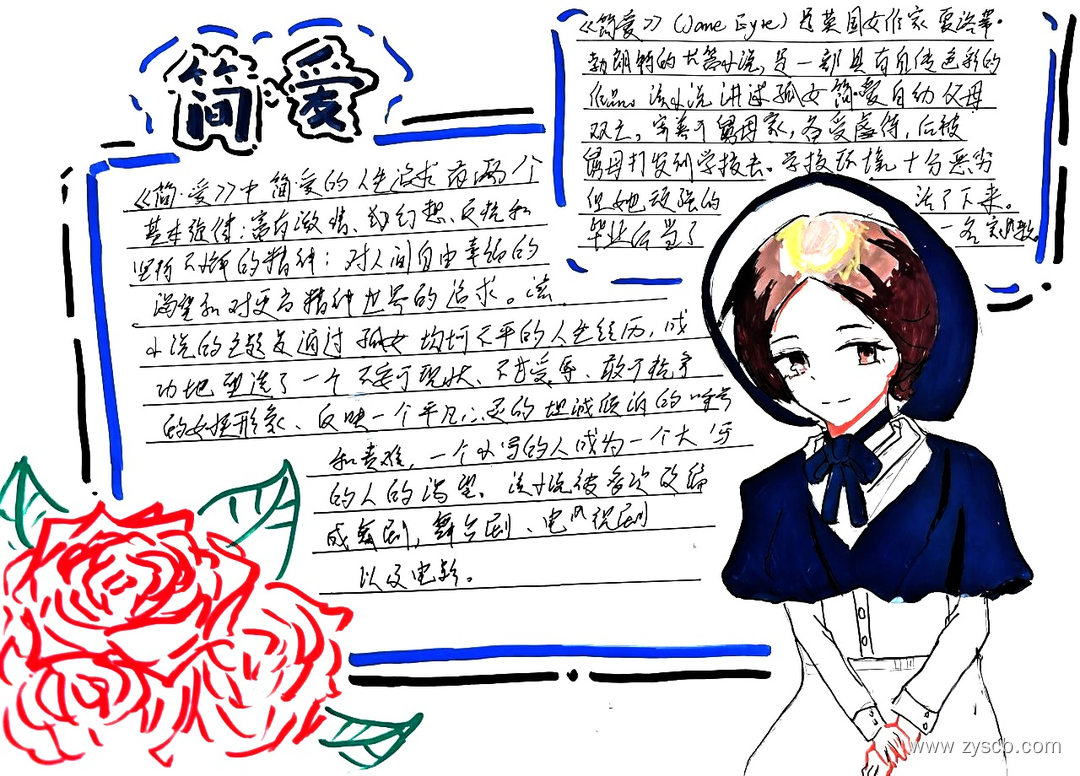 简·爱
《简爱》(Jane Eyre)是英国女作家夏洛蒂·
勃朗特的长篇小说,是一部具有自传色彩的
作品。该小说讲述孤女简·爱自幼父母
双亡,寄养于舅母家,备受虐待,后被
舅母打发到学校去。学校环境十分恶劣
但她顽强的 活了下来。
毕业后当了 一名家教
《简·爱》中简爱的人生追求有两个
基本旋律:富有激情、幻想、反抗和
坚持不懈的精神;对人间自由幸福的
渴望和对更高精神世界的追求。该
小说的主题是通过孤女坎坷不平的人生经历,成
功地塑造了一个不安于现状、不甘受辱、敢于抗争
的女性形象、反映一个平凡心灵的坦诚倾诉的呼号
和责难,一个小写的人成为一个大写
的人的渴望。该小说被多次改编
成舞剧、电影
以及电影。
www.zyscb.com